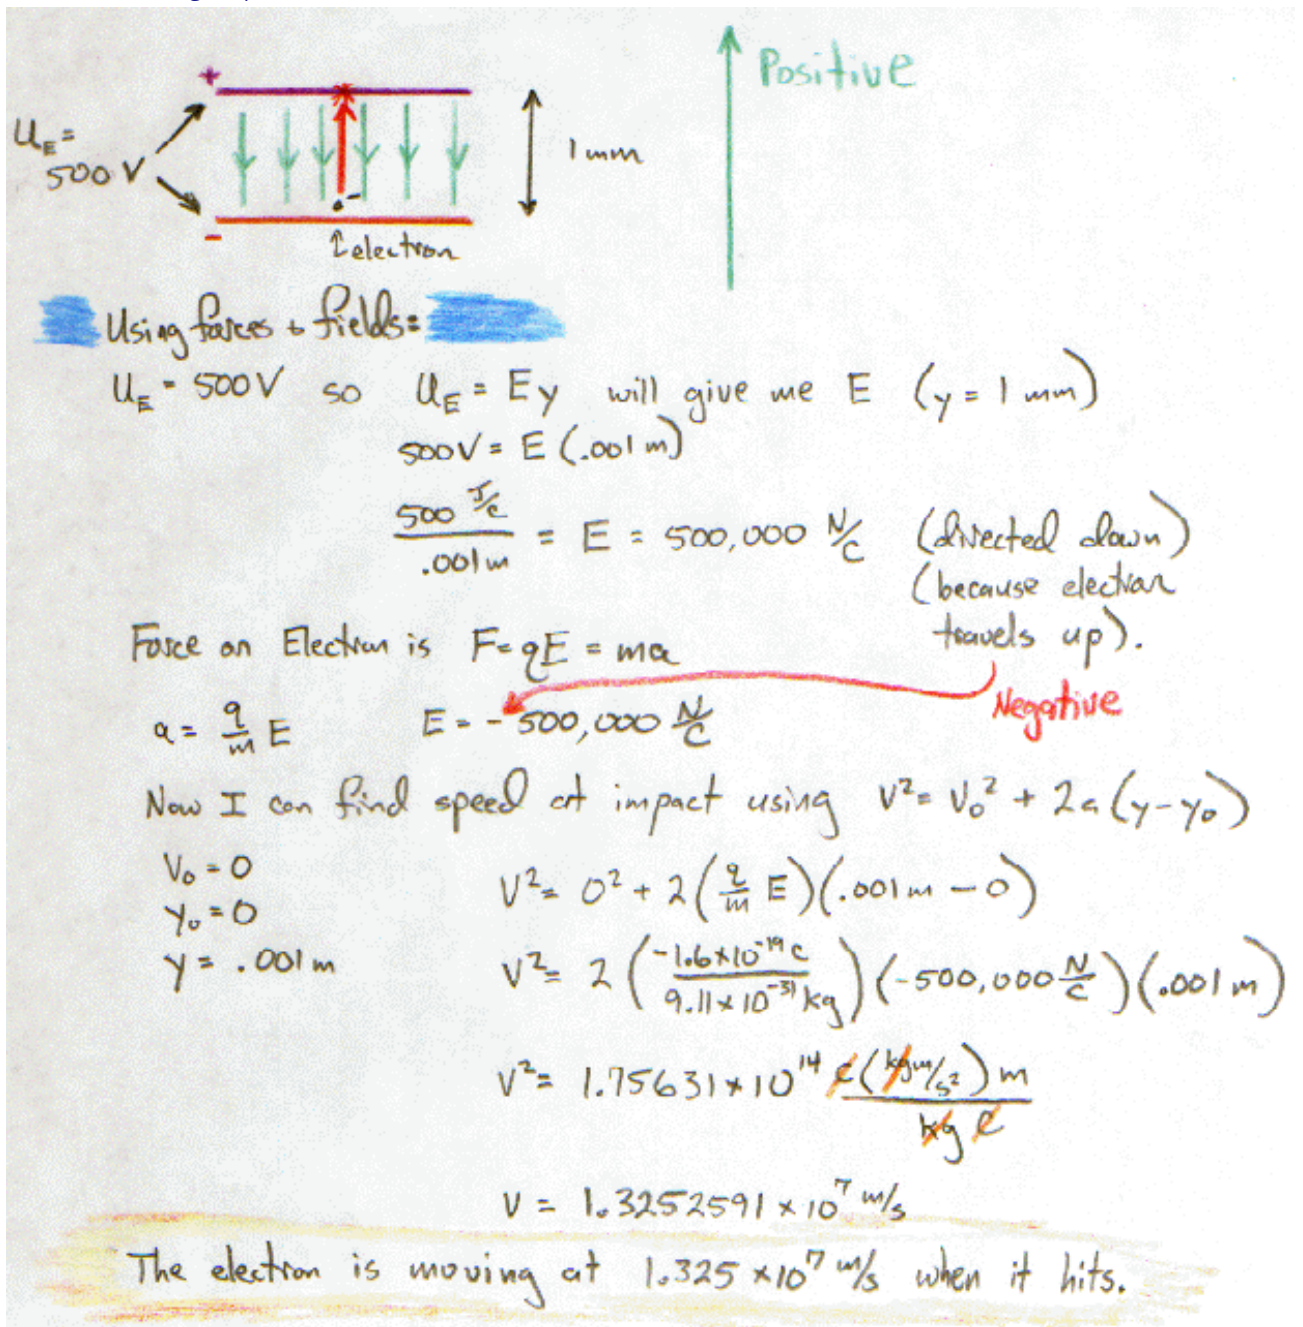 +
Positive
U_E =
500 V
1 mm
-
-
↑electron
Using forces + fields:
U_E = 500V so U_E = Ey will give me E (y = 1 mm)
500V = E (.001 m)
500 J/C / .001 m = E = 500,000 N/C (directed down)
(because electron
travels up).
Force on Electron is F = qE = ma
Negative
a = q/m E E = - 500,000 N/C
Now I can find speed at impact using V² = V₀² + 2a(y-y₀)
V₀ = 0
y₀ = 0
y = .001 m
V² = 0² + 2(q/m E)(.001m - 0)
V² = 2(-1.6×10⁻¹⁹ C / 9.11×10⁻³¹ kg)(-500,000 N/C)(.001 m)
V² = 1.75631×10¹⁴ C(kgm/s²)m / kg C
V = 1.3252591×10⁷ m/s
The electron is moving at 1.325×10⁷ m/s when it hits.